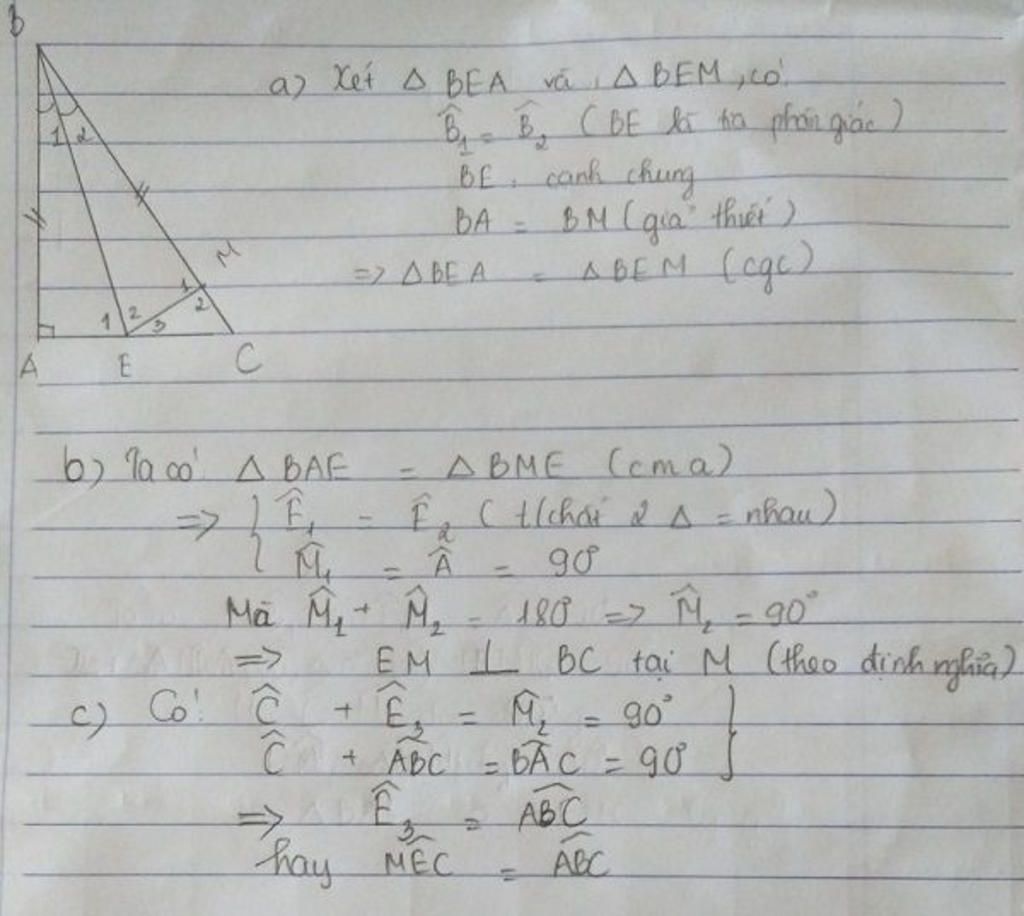 B
1 2
M
1
2
1 2 3
A E C
a) Xét △ BEA và △ BEM, có
B̂₁ = B̂₂ (BE là tia phân giác)
BE: cạnh chung
BA = BM (giả thiết)
=> △BEA = △BEM (cgc)
b) Ta có △ BAE = △ BME (cma)
=> { Ê₁ = Ê₂ (t/c hai 2 △ = nhau)
M̂₁ = Â = 90°
Mà M̂₁ + M̂₂ = 180° => M̂₂ = 90°
=> EM ⊥ BC tại M (theo định nghĩa)
c) Có: Ĉ + Ê₃ = M̂₂ = 90° }
Ĉ + ABC = BAC = 90°
=> Ê₃ = ABC
hay MEC = ABC